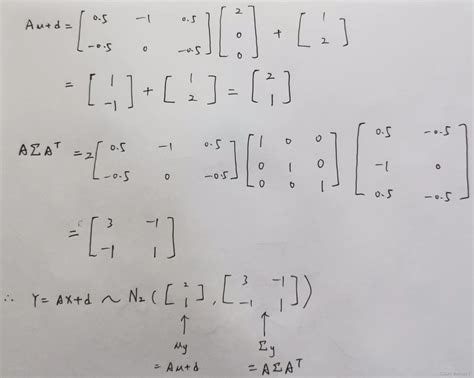 Aμ+d = [0.5 -1 0.5; -0.5 0 -0.5] [2; 0; 0] + [1; 2]
= [1; -1] + [1; 2] = [2; 1]
AΣA^T = 2 [0.5 -1 0.5; -0.5 0 -0.5] [1 0 0; 0 1 0; 0 0 1] [0.5 -0.5; -1 0; 0.5 -0.5]
= [3 -1; -1 1]
∴ Y = AX+d ~ N₂ ([2; 1], [3 -1; -1 1])
↑ ↑
μy Σy
= Aμ+d = AΣA^T